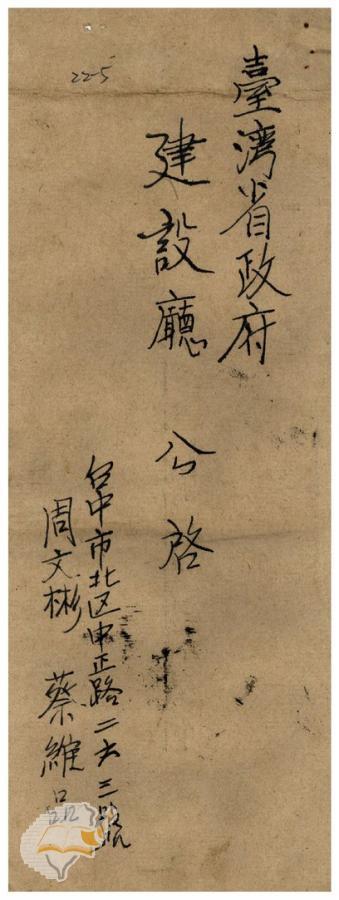 臺湾省政府
建設廳 公啓
台中市北区中正路二六三號
周文彬 蔡維品
22-5